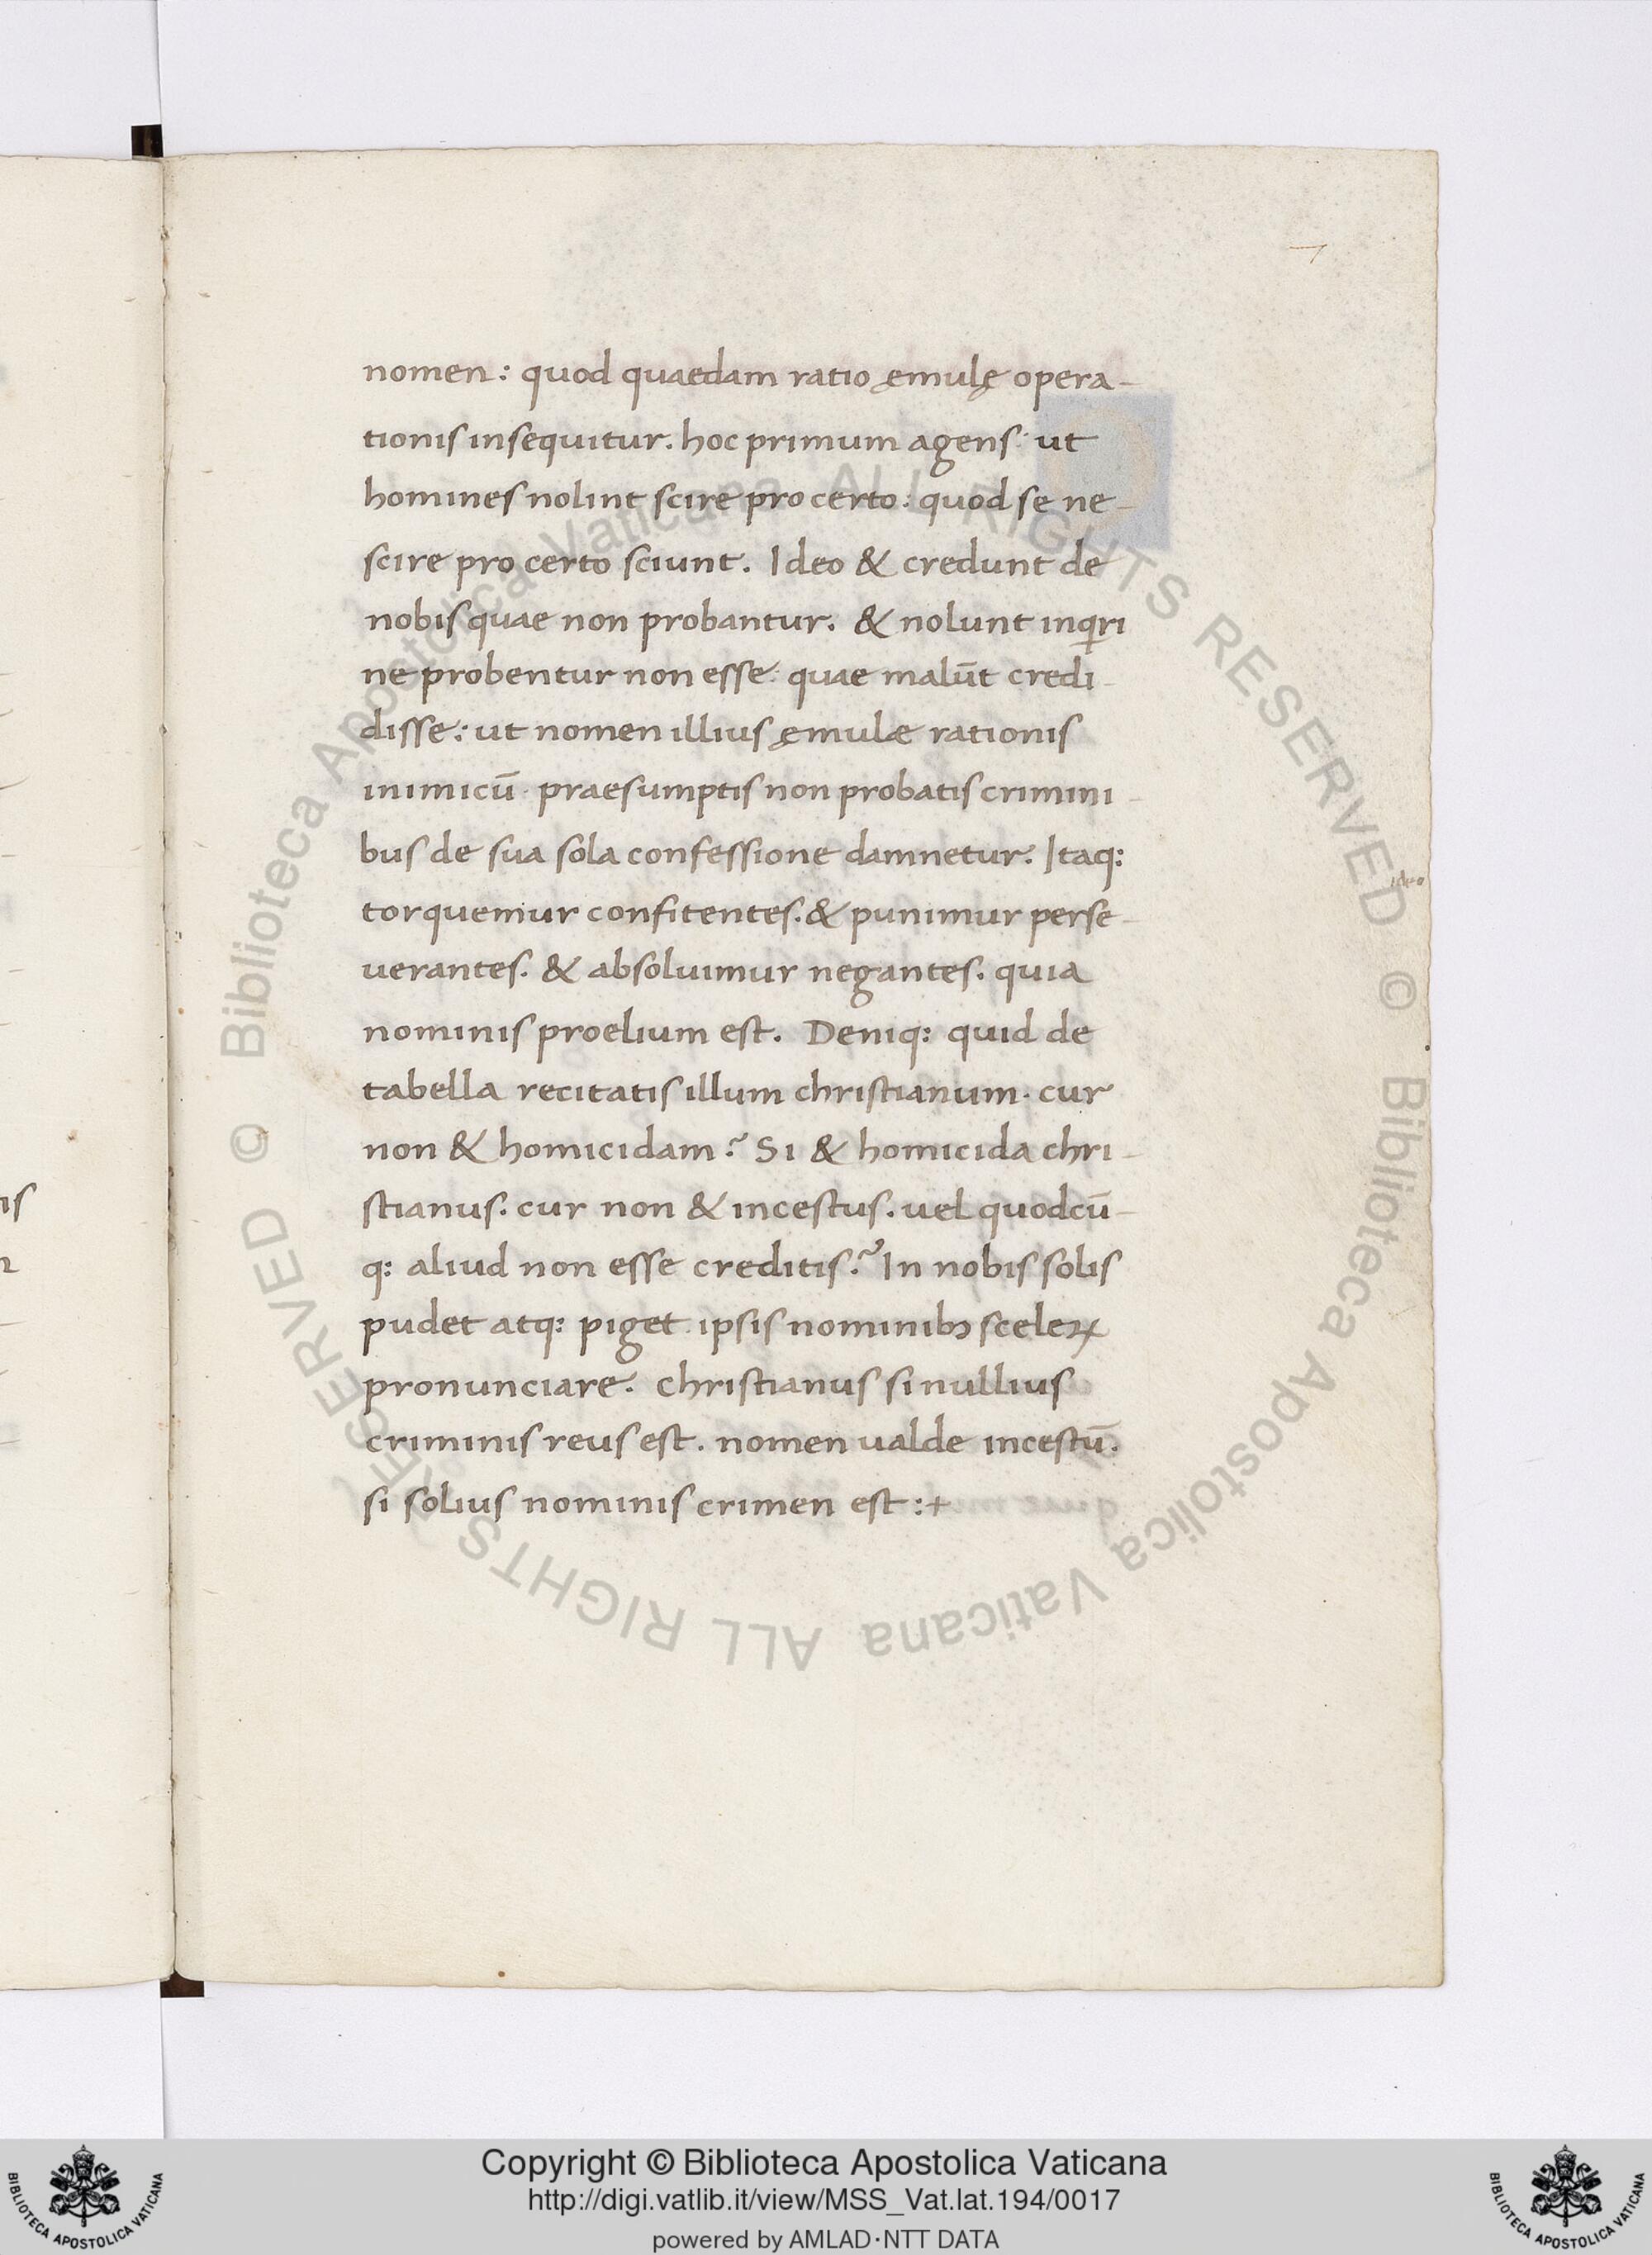 nomen: quod quaedam ratio ęmulę opera-
tionis insequitur. hoc primum agens: ut
homines nolint scire pro certo: quod se ne-
scire pro certo sciunt. Ideo & credunt de
nobis quae non probantur. & nolunt inqͥri
ne probentur non esse: quae malūt credi-
disse: ut nomen illius ęmulae rationis
inimicū. praesumptis non probatis crimini-
bus de sua sola confessione damnetur. Itaq:
torquemur confitentes. & punimur perse-
uerantes. & absoluimur negantes. quia
nominis proelium est. Deniq: quid de
tabella recitatis illum christianum. cur
non & homicidam? Si & homicida chri-
stianus. cur non & incestus. uel quodcū-
q: aliud non esse creditis? In nobis solis
pudet atq: piget. ipsis nominibꝫ sceleꝝ
pronunciare. christianus si nullius
criminis reus est. nomen ualde incestū.
si solius nominis crimen est:+
7
ideo
is
© Biblioteca Apostolica Vaticana ALL RIGHTS RESERVED © Biblioteca Apostolica Vaticana ALL RIGHTS RESERVED
Copyright © Biblioteca Apostolica Vaticana
http://digi.vatlib.it/view/MSS_Vat.lat.194/0017
powered by AMLAD·NTT DATA
BIBLIOTECA APOSTOLICA VATICANA
BIBLIOTECA APOSTOLICA VATICANA